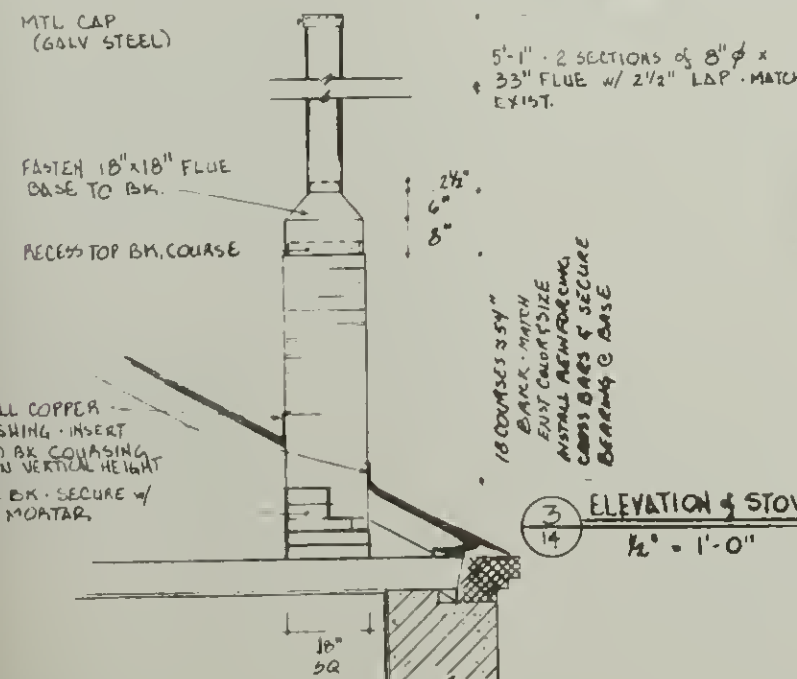 MTL CAP
(GALV STEEL)
5'-1" · 2 SECTIONS of 8" ϕ x
33" FLUE W/ 2 1/2" LAP · MATCH
EXIST.
FASTEN 18"x18" FLUE
BASE TO BK.
2 1/2"
6"
8"
RECESS TOP BK, COURSE
18 COURSES 54"
BRICK · MATCH
EXIST COLOR & SIZE
INSTALL REINFORCING,
CROSS BARS & SECURE
BEARING @ BASE
LL COPPER
SHING · INSERT
BK COURSING
N VERTICAL HEIGHT
BK · SECURE W/
MORTAR
3
14
ELEVATION of STOV
1/2" = 1'-0"
18"
SQ